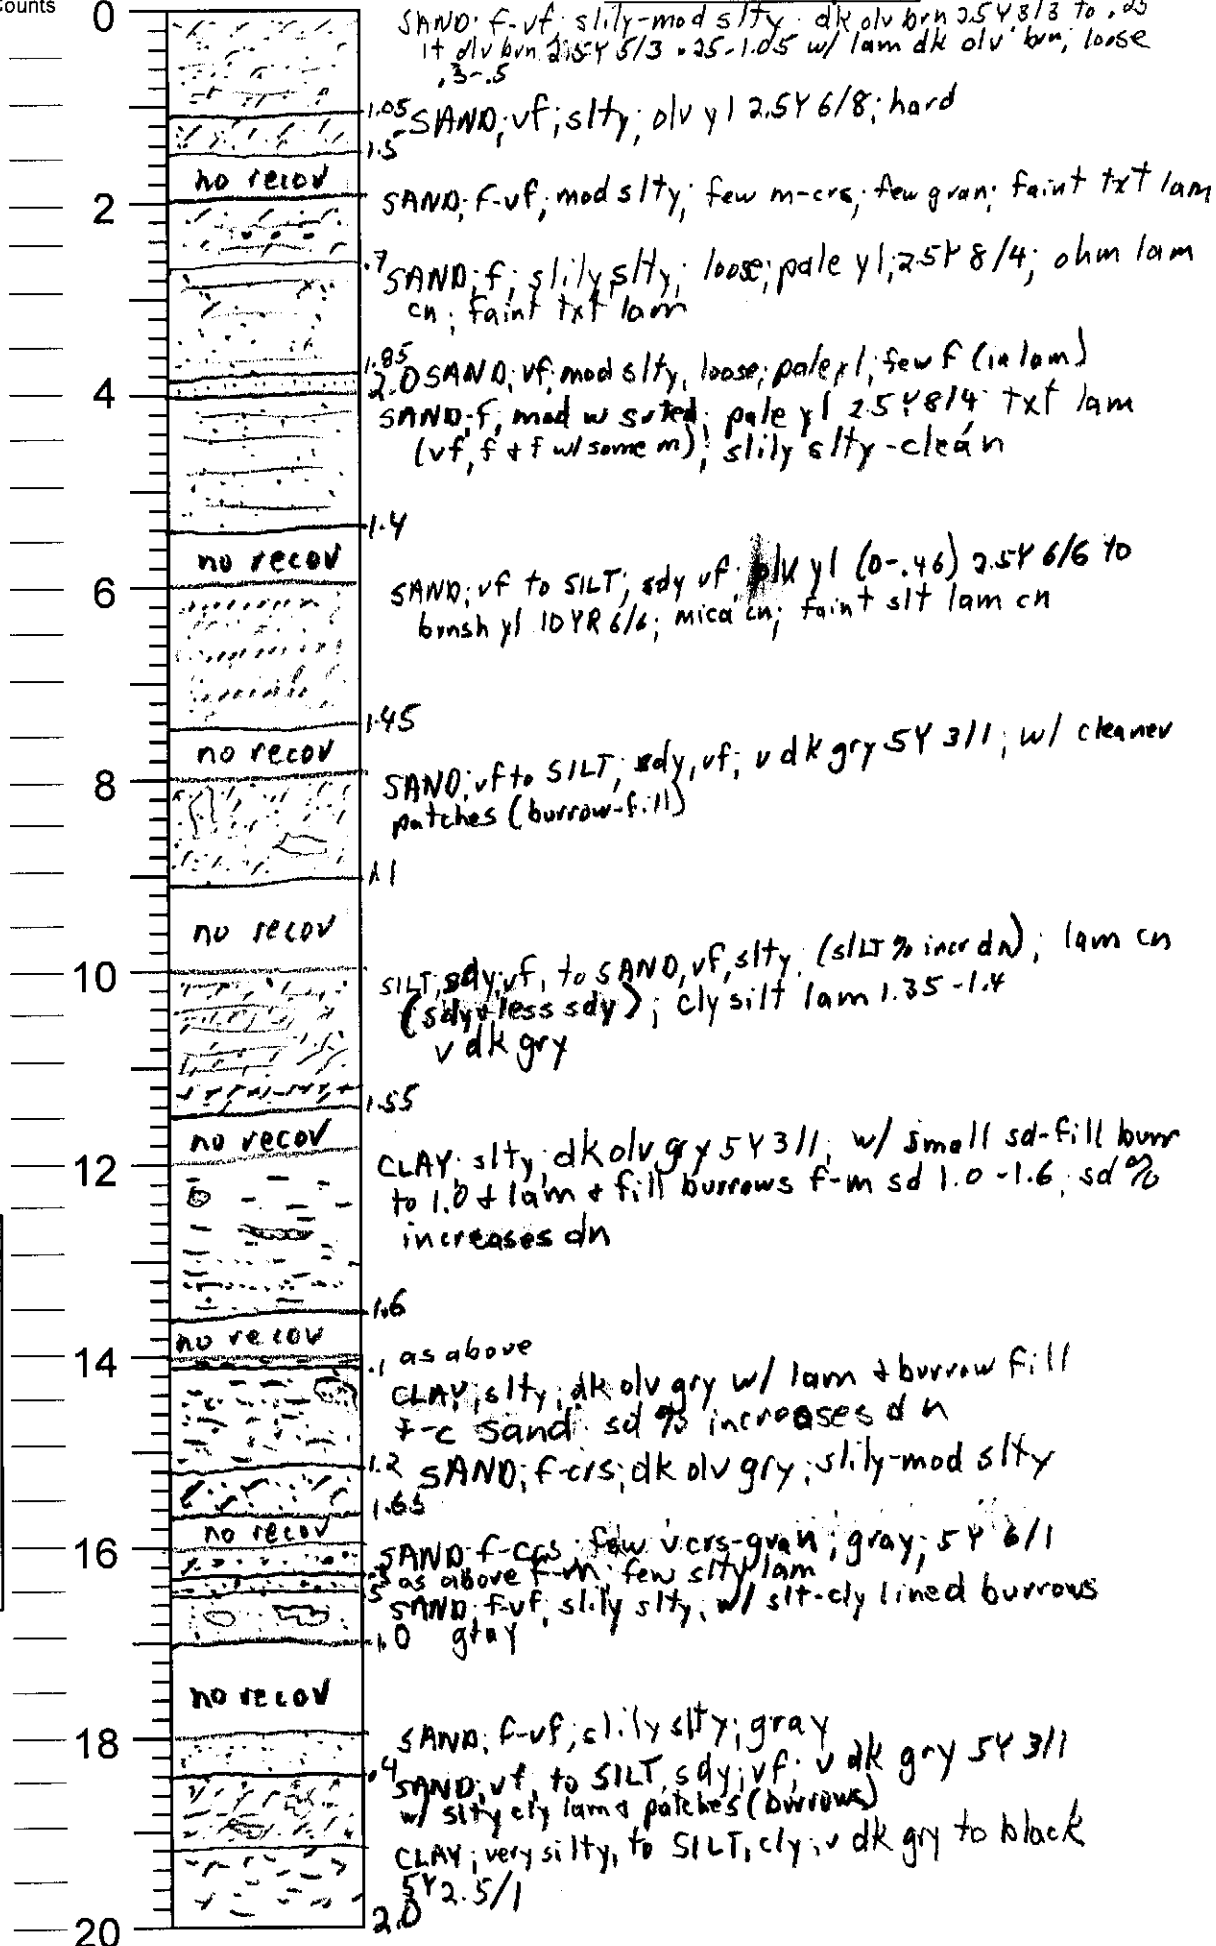 Counts
0
SAND: f-vf; slily-mod slty. dk olv brn 2.5Y 3/3 to .25
lt olv brn 2.5Y 5/3 .25-1.05 w/ lam dk olv brn, loose
.3-.5
1.05 SAND; vf; slty; olv yl 2.5Y 6/8; hard
1.5
no recov
2 SAND; f-vf; mod slty; few m-crs; few gran; faint txt lam
.7 SAND; f; slily slty; loose; pale yl; 2.5Y 8/4; ohm lam
cn; faint txt lam
1.85
2.0 SAND; vf; mod slty, loose; pale yl; few f (in lam)
4 SAND; f, mod w srted; pale yl 2.5Y 8/4 txt lam
(vf, f + f w/ some m); slily slty-clean
1.4
no recov
6 SAND; vf to SILT; sdy vf; olv yl (0-.46) 2.5Y 6/6 to
brnsh yl 10YR 6/6; mica cn; faint slt lam cn
1.45
no recov
8 SAND; vf to SILT; sdy, vf; v dk gry 5Y 3/1; w/ cleaner
patches (burrow-fill)
1.1
no recov
10 SILT, sdy, vf, to SAND, vf, slty. (SILT % incr dn); lam cn
(sdy + less sdy); cly silt lam 1.35-1.4
v dk gry
1.55
no recov
12 CLAY; slty; dk olv gry 5Y 3/1; w/ small sd-fill burr
to 1.0 + lam + fill burrows f-m sd 1.0-1.6; sd %
increases dn
1.6
no recov
14 .1 as above
CLAY; slty; dk olv gry w/ lam + burrow fill
f-c sand. sd % increases dn
1.2 SAND; f-crs; dk olv gry; slily-mod slty
1.65
no recov
16 SAND f-crs. few v crs-gran; gray; 5Y 6/1
.3 as above f-m. few slty lam
.5 SAND; f-vf; slily slty; w/ slt-cly lined burrows
1.0 gray
no recov
18 SAND; f-vf; slily slty; gray
.4 SAND; vf, to SILT, sdy; vf; v dk gry 5Y 3/1
w/ slty cly lam + patches (burrows)
CLAY; very silty, to SILT, cly; v dk gry to black
5Y 2.5/1
2.0
20